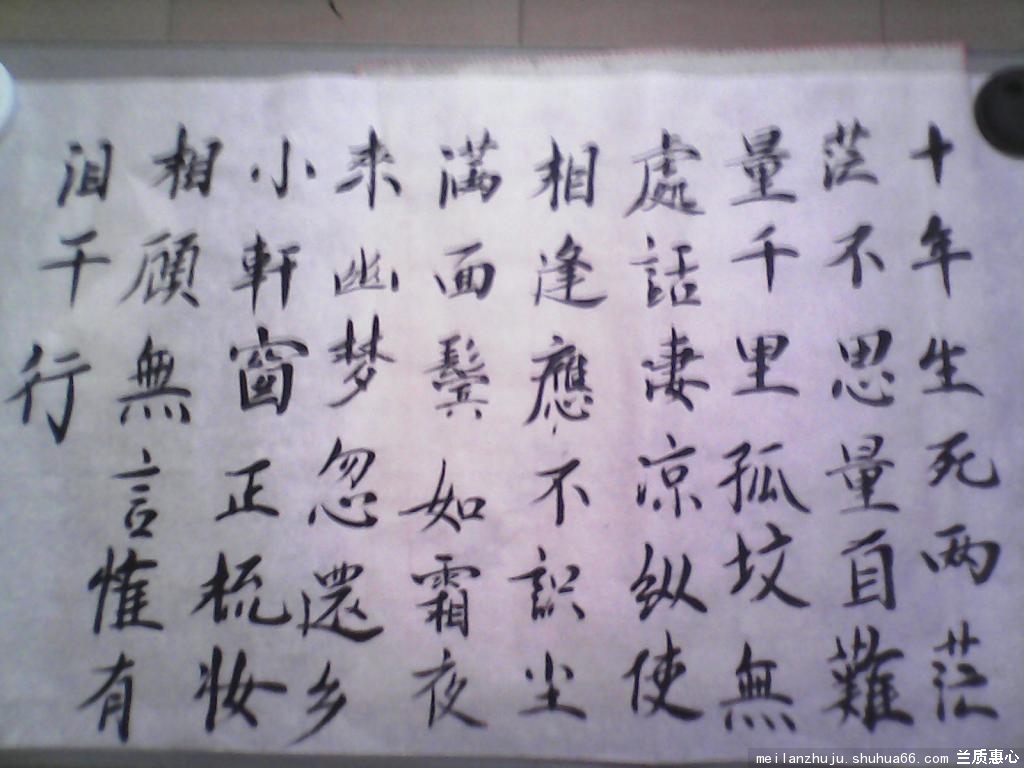 十年生死两茫
茫不思量自難
量千里孤坟無
處話凄凉纵使
相逢應不識尘
满面鬓如霜夜
来幽梦忽還乡
小軒窗正梳妆
相顾無言惟有
泪千行
meilanzhuju.shuhua66.com 兰质惠心